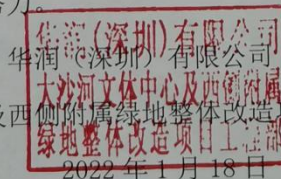 力。
华润（深圳）有限公司
华润（深圳）有限公司
大沙河文体中心及西侧附属
及西侧附属绿地整体改造
绿地整体改造项目工程部
2022年1月18日